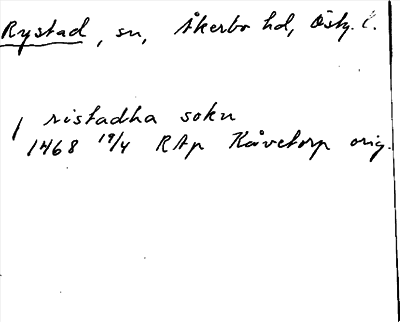 Rystad, sn, Åkerbo hd, Östg. l.
/ ristadha sokn
1468 19/4 RAp Kåvetorp orig.